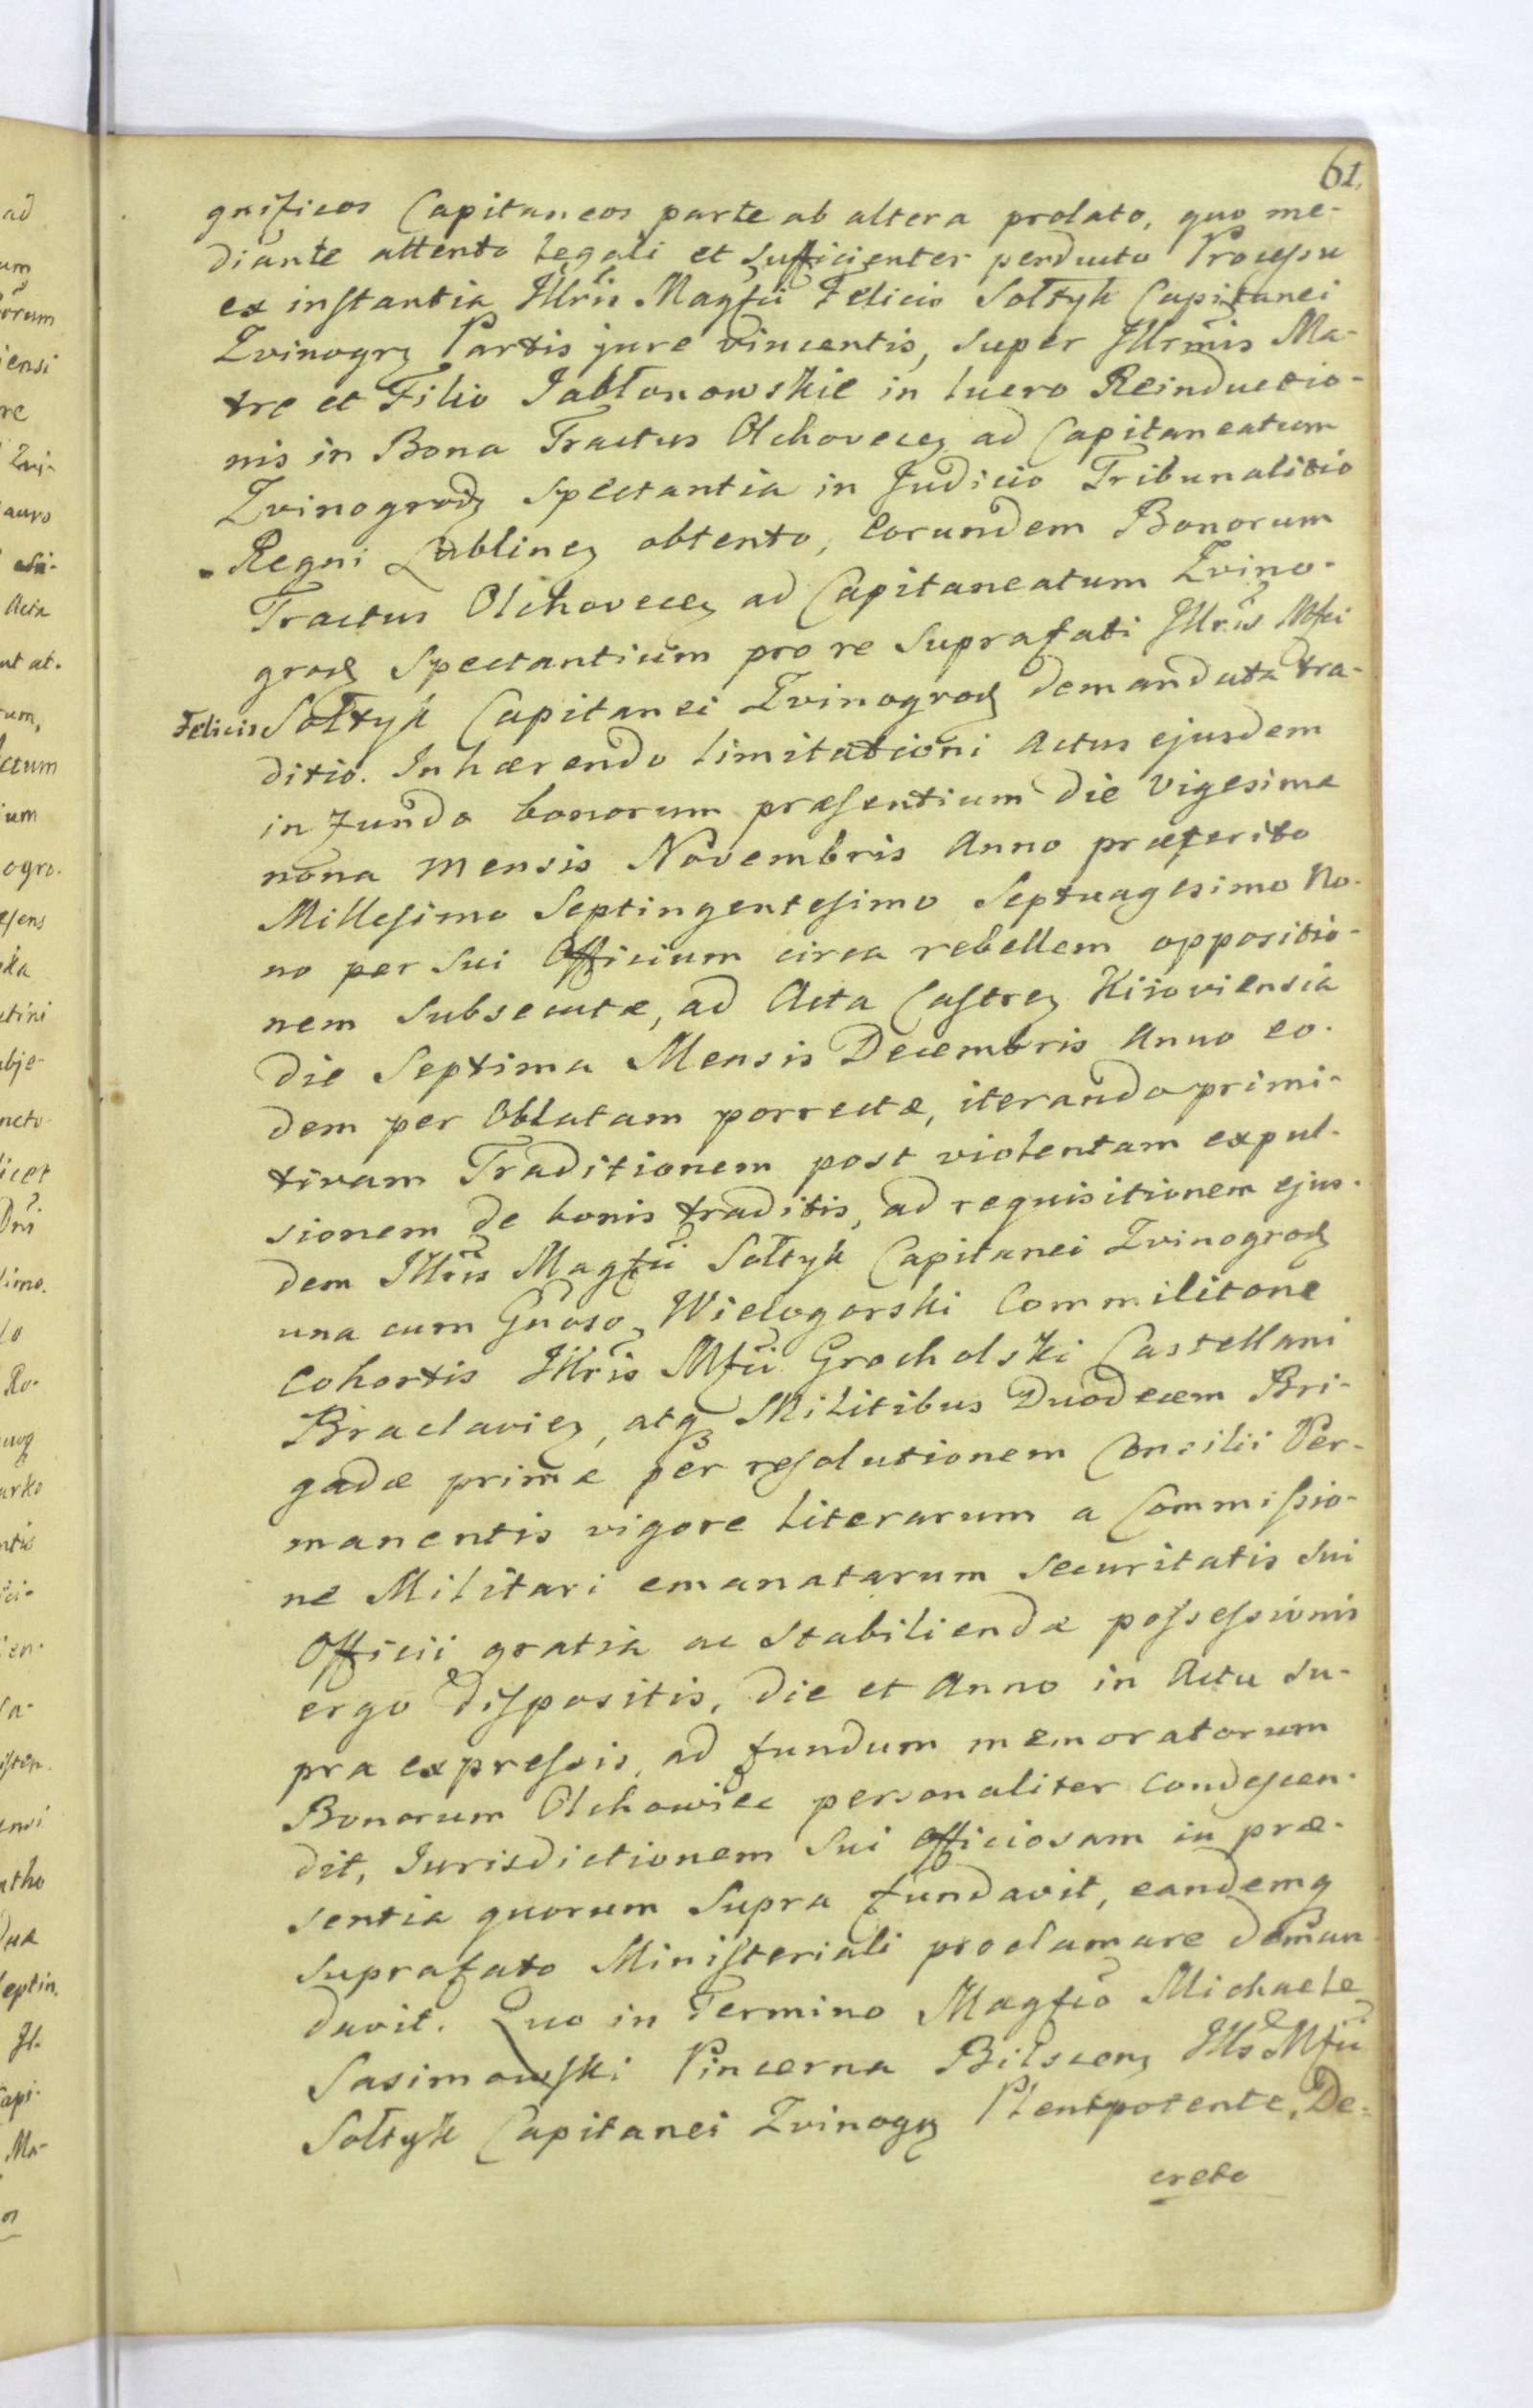 61.
gnificos Capitaneos parte ab altera prolato, quo me-
diante attento legali et sufficienter perducto Processu
ex instantia Illris Magfci Felicis Sołtyk Capitanei
Zvinogrz Partis jure vincentis, super Illrmis Ma-
tre et Filio Jabłonowskie in lucro Reinductio-
nis in Bona Tractus Olchovecen ad Capitaneatum
Zvinogrodz Spectantia in Judicio Tribunalitio
Regni Lublinen obtento, eorundem Bonorum
Tractus Olchovecen ad Capitaneatum Zvino-
grodz Spectantium pro re Suprafati Illris Mfci
Felicis Sołtyk Capitanei Zvinogrodz demandata tra-
ditio. Inhærendo limitationi Actus ejusdem
in fundo bonorum præsentium die vigesima
nona mensis Novembris Anno præterito
Millesimo Septingentesimo Septuagesimo No-
no per sui Officium circa rebellem oppositio-
nem subsecutæ, ad Acta Castren Kijoviensia
die Septima Mensis Decembris Anno eo-
dem per Oblatam porrectæ, iterando primi-
tivam Traditionem post violentam expul-
sionem de bonis traditis, ad requisitionem ejus-
dem Illris Magfci Sołtyk Capitanei Zvinogrodz
una cum Gnoso Wielogorski Commilitone
Cohortis Illris Mfci Grocholski Castellani
Braclavien, atq Militibus Duodecem Bri-
gadæ primæ per resolutionem Consilii Per-
manentis vigore literarum a Commissio-
ne Militari emanatarum securitatis sui
Officii gratia ac stabiliendæ possessionis
ergo dispositis, die et Anno in Actu su-
pra expressis, ad fundum memoratorum
Bonorum Olchowiec personaliter condescen-
dit, Jurisdictionem sui officiosam in præ-
sentia quorum supra fundavit, eandemq
suprafato Ministeriali proclamare deman
davit. Quo in Termino Magfco Michaele
Sasimowski Pincerna Bilscen Ills Mfci
Sołtyk Capitanei Zvinogrz Plenipotente, De-
creto